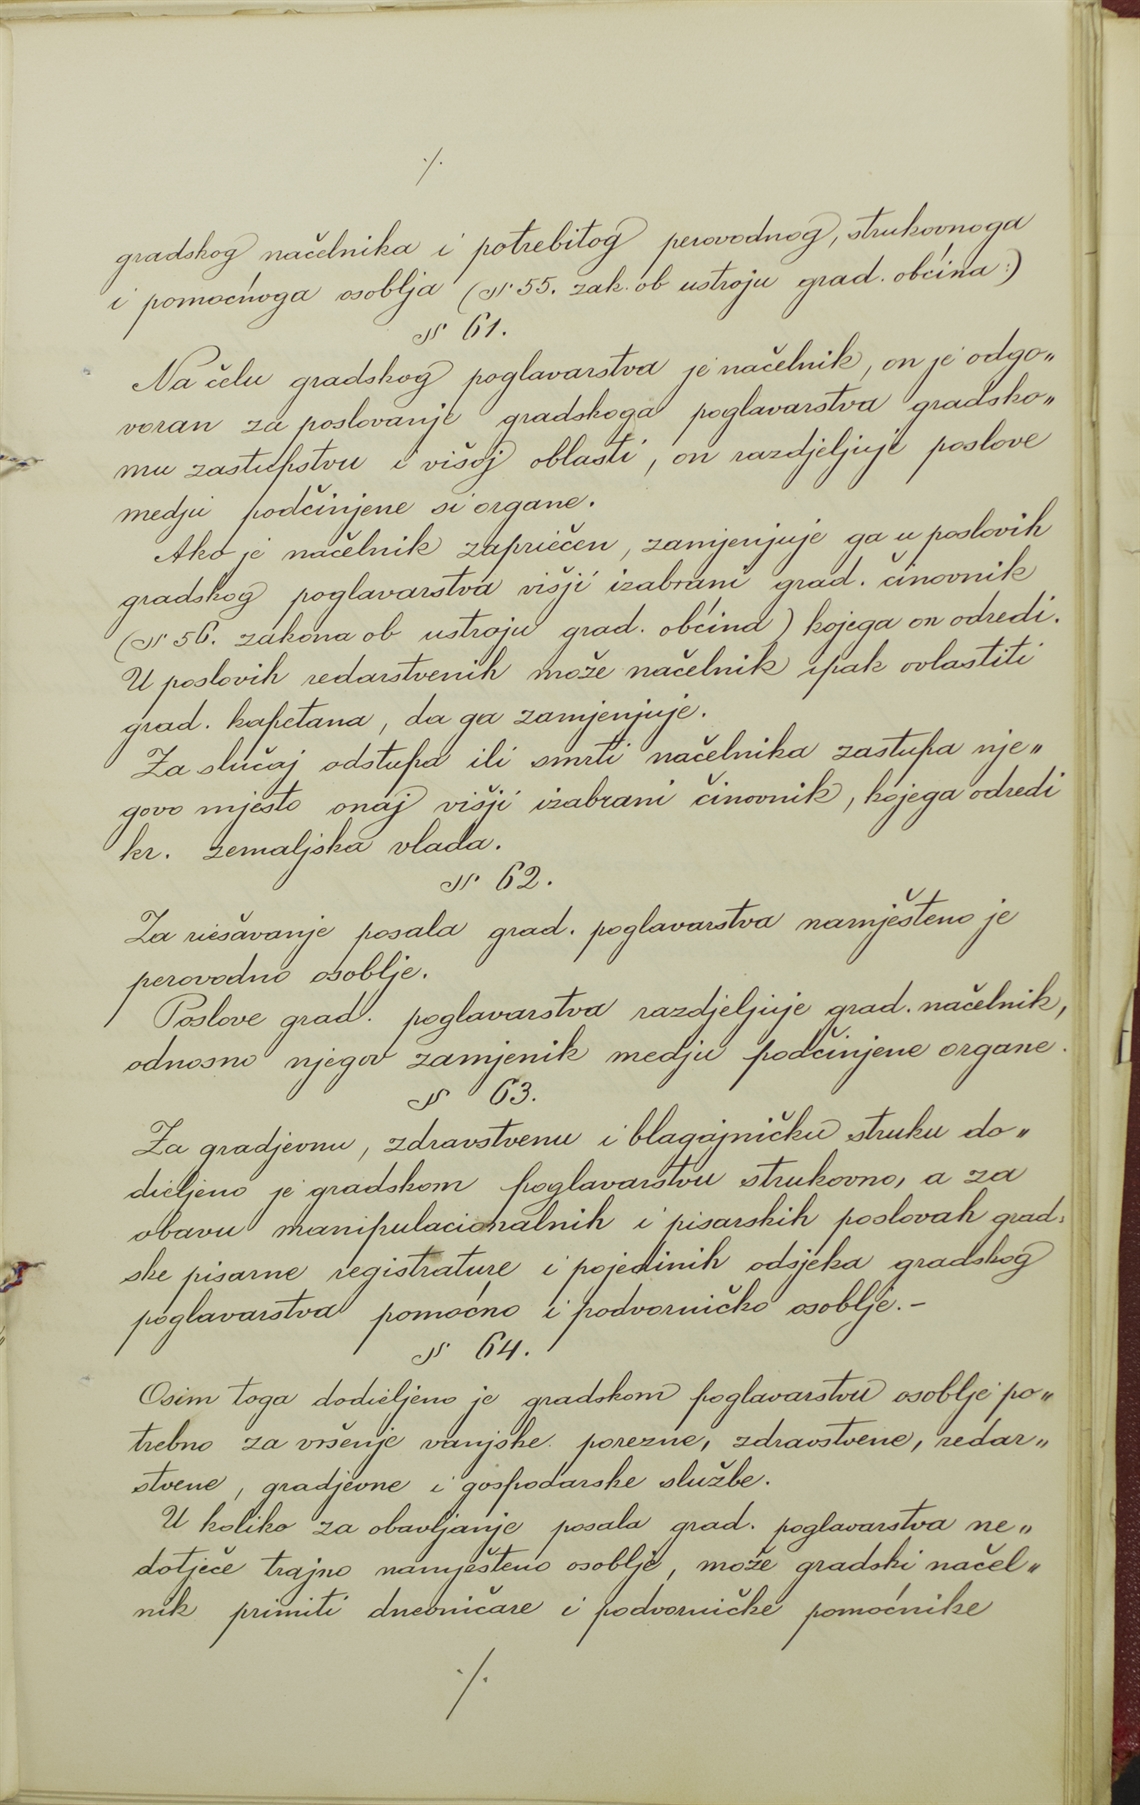 ·/·
gradskog načelnika i potrebitog perovodnog, strukovnoga
i pomoćnoga osoblja (§ 55. zak. ob ustroju grad. obćina:)
§ 61.
Na čelu gradskog poglavarstva je načelnik, on je odgo„
voran za poslovanje gradskoga poglavarstva gradsko„
mu zastupstvu i višoj oblasti, on razdjeljuje poslove
medju podčinjene si organe.
Ako je načelnik zapriečen, zamjenjuje ga u poslovih
gradskog poglavarstva višji izabrani grad. činovnik
(§ 56. zakona ob ustroju grad. obćina) kojega on odredi.
U poslovih redarstvenih može načelnik ipak ovlastiti
grad. kapetana, da ga zamjenjuje.
Za slučaj odstupa ili smrti načelnika zastupa nje„
govo mjesto onaj višji izabrani činovnik, kojega odredi
kr. zemaljska vlada.
§ 62.
Za riešavanje posala grad. poglavarstva namješteno je
perovodno osoblje.
Poslove grad. poglavarstva razdjeljuje grad. načelnik,
odnosno njegov zamjenik medju podčinjene organe.
§ 63.
Za gradjevnu, zdravstvenu i blagajničku struku do„
dieljeno je gradskom poglavarstvu strukovno, a za
obavu manipulacionalnih i pisarskih poslovah grad:
ske pisarne registrature i pojedinih odsjeka gradskog
poglavarstva pomoćno i podvorničko osoblje.-
§ 64.
Osim toga dodieljeno je gradskom poglavarstvu osoblje po„
trebno za vršenje vanjske porezne, zdravstvene, redar„
stvene, gradjevne i gospodarske službe.
U koliko za obavljanje posala grad. poglavarstva ne„
dotječe trajno namješteno osoblje, može gradski načel„
nik primiti dnevničare i podvorničke pomoćnike
·/·